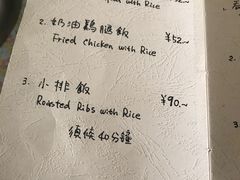 with Rice
2. 奶油鷄腿飯 ¥52~
Fried Chicken with Rice
3. 小排飯 ¥90~
Roasted Ribs with Rice
須候40分鐘